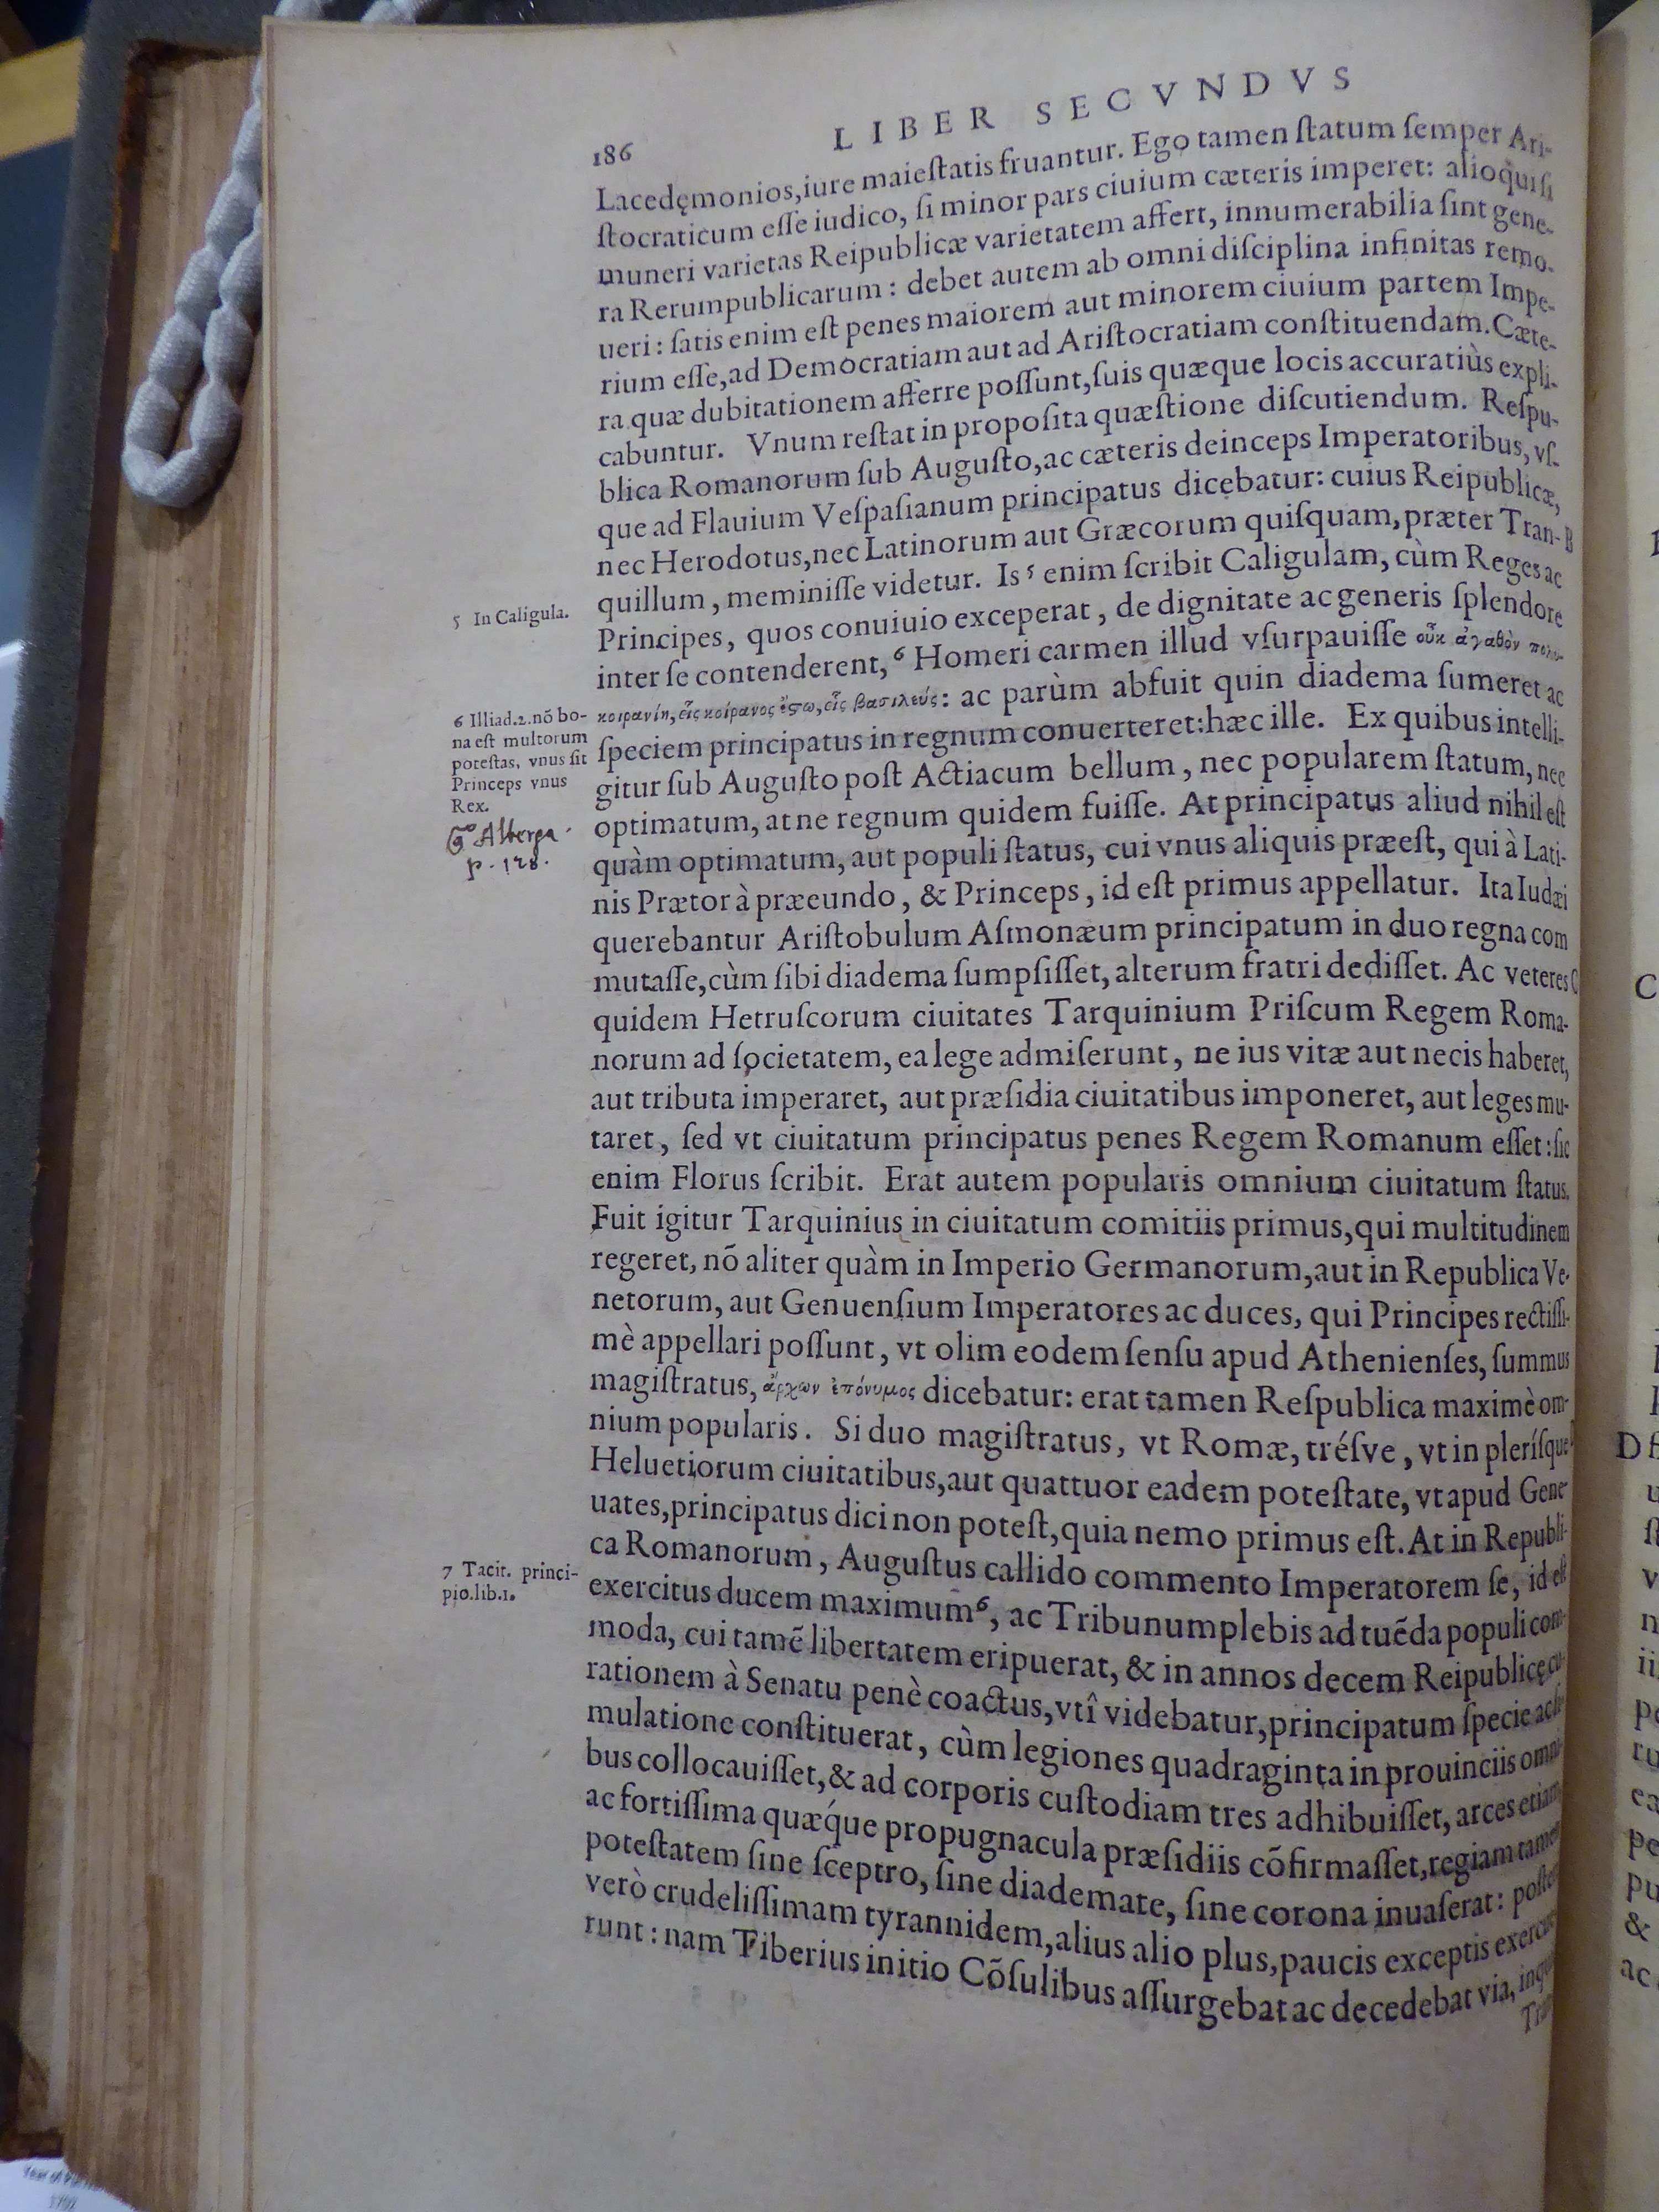 186
LIBER SECVNDVS
Lacedęmonios,iure maieſtatis fruantur. Ego tamen ſtatum ſemper Ari-
ſtocraticum eſſe iudico, ſi minor pars ciuium cæteris imperet: alioqui ſi
muneri varietas Reipublicæ varietatem affert, innumerabilia ſint gene-
ra Rerumpublicarum : debet autem ab omni diſciplina infinitas remo-
ueri : ſatis enim eſt penes maiorem aut minorem ciuium partem Impe-
rium eſſe,ad Democratiam aut ad Ariſtocratiam conſtituendam.Cæte-
ra quæ dubitationem afferre poſſunt,ſuis quæque locis accuratiùs expli-
cabuntur. Vnum reſtat in propoſita quæſtione diſcutiendum. Reſpu-
blica Romanorum ſub Auguſto,ac cæteris deinceps Imperatoribus, vſ-
que ad Flauium Veſpaſianum principatus dicebatur: cuius Reipublicæ,
nec Herodotus,nec Latinorum aut Græcorum quiſquam,præter Tran- B
quillum , meminiſſe videtur. Is ⁵ enim ſcribit Caligulam, cùm Reges ac
5 In Caligula.
Principes, quos conuiuio exceperat , de dignitate ac generis ſplendore
inter ſe contenderent, ⁶ Homeri carmen illud vſurpauiſſe οὖκ ἀγαθὸν πολυ-
κοιρανίη, εἷς κοίρανος ἔϛω, εἷς βασιλεύς: ac parùm abfuit quin diadema ſumeret ac
6 Illiad.2.nõ bo-
na eſt multorum
poteſtas, vnus ſit
Princeps vnus
Rex.
ſpeciem principatus in regnum conuerteret:hæc ille. Ex quibus intelli-
gitur ſub Auguſto poſt Actiacum bellum , nec popularem ſtatum, nec
optimatum, at ne regnum quidem fuiſſe. At principatus aliud nihil eſt
Alberga
p. 128.
quàm optimatum, aut populi ſtatus, cui vnus aliquis præeſt, qui à Lati-
nis Prætor à præeundo , & Princeps , id eſt primus appellatur. Ita Iudæi
querebantur Ariſtobulum Aſmonæum principatum in duo regna com
mutaſſe,cùm ſibi diadema ſumpſiſſet, alterum fratri dediſſet. Ac veteres C
quidem Hetruſcorum ciuitates Tarquinium Priſcum Regem Roma-
norum ad ſocietatem, ea lege admiſerunt , ne ius vitæ aut necis haberet,
aut tributa imperaret, aut præſidia ciuitatibus imponeret, aut leges mu-
taret , ſed vt ciuitatum principatus penes Regem Romanum eſſet : ſic
enim Florus ſcribit. Erat autem popularis omnium ciuitatum ſtatus.
Fuit igitur Tarquinius in ciuitatum comitiis primus,qui multitudinem
regeret, nõ aliter quàm in Imperio Germanorum,aut in Republica Ve-
netorum, aut Genuenſium Imperatores ac duces, qui Principes rectiſſi-
mè appellari poſſunt , vt olim eodem ſenſu apud Athenienſes, ſummus
magiſtratus, ἄρχων ἐπόνυμος dicebatur: erat tamen Reſpublica maximè om-
nium popularis . Si duo magiſtratus , vt Romæ, tréſve , vt in pleríſque
Heluetiorum ciuitatibus,aut quattuor eadem poteſtate, vt apud Gene-
uates,principatus dici non poteſt,quia nemo primus eſt.At in Republi-
ca Romanorum , Auguſtus callido commento Imperatorem ſe, id eſt
7 Tacit. princi-
pio.lib.1.
exercitus ducem maximum⁶, ac Tribunum plebis ad tuẽda populi com-
moda, cui tamẽ libertatem eripuerat, & in annos decem Reipublicę cu-
rationem à Senatu penè coactus,vtî videbatur,principatum ſpecie ac ſi-
mulatione conſtituerat , cùm legiones quadraginta in prouinciis omni-
bus collocauiſſet,& ad corporis cuſtodiam tres adhibuiſſet, arces etiam
ac fortiſſima quǽque propugnacula præſidiis cõfirmaſſet,regiam tamen
poteſtatem ſine ſceptro, ſine diademate, ſine corona inuaſerat: poſteri
verò crudeliſſimam tyrannidem,alius alio plus,paucis exceptis exercue-
runt : nam Tiberius initio Cõſulibus aſſurgebat ac decedebat via,
C
D